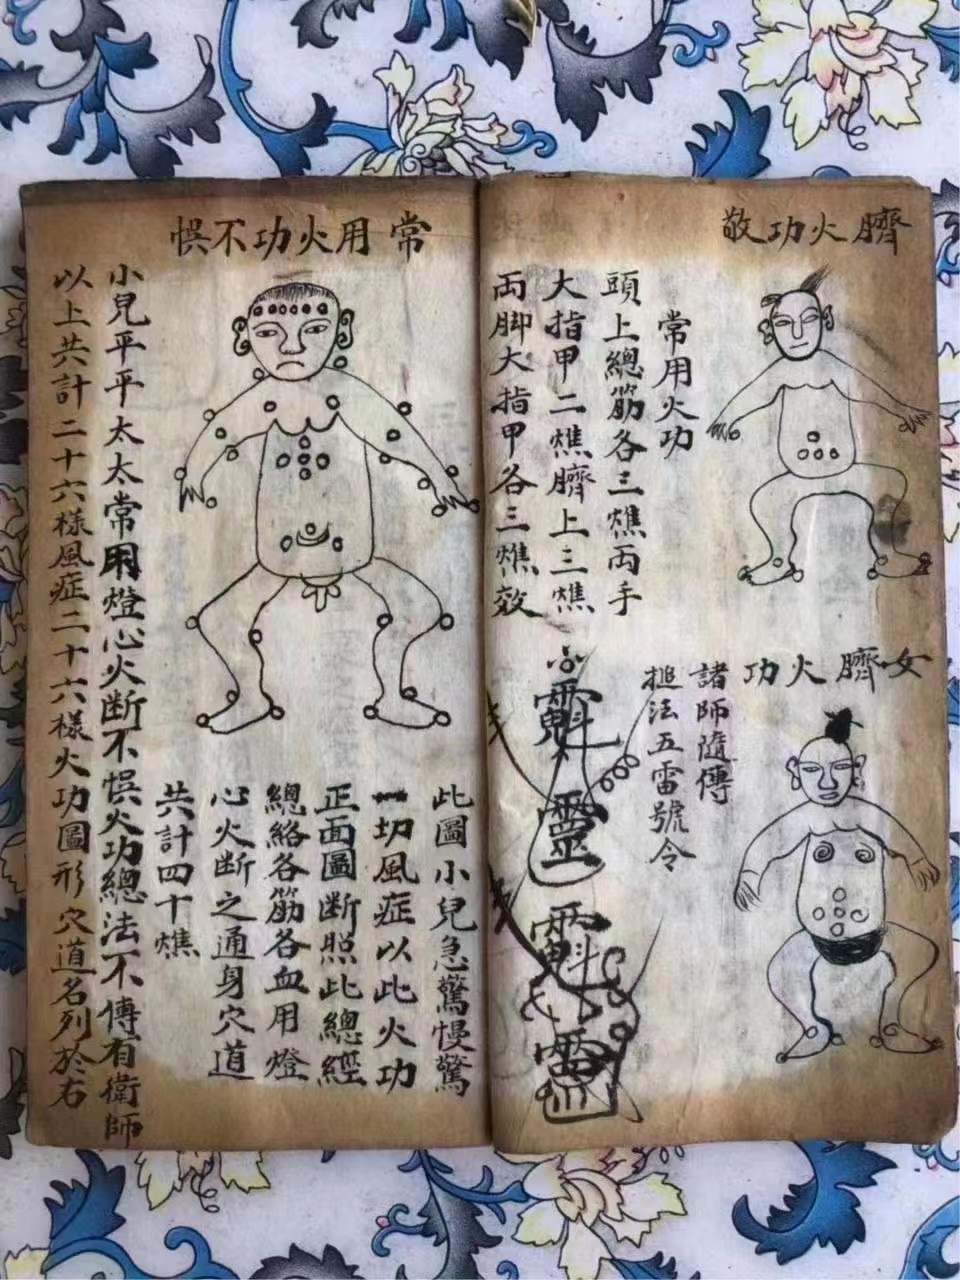 臍火功敬
常用火功
頭上總筋各三燋両手
大指甲二燋臍上三燋
両脚大指甲各三燋效
女臍火功
諸師隨傳
搥法五雷號令
常用火功不悞
此圖小兒急驚慢驚
一切風症以此火功
正面圖断照此總經
總絡各筋各血用燈
心火断之通身穴道
共計四十燋
小兒平平太太常用燈心火断不悞火功總法不傳有衛師
以上共計二十六樣風症二十六樣火功圖形穴道名列於右